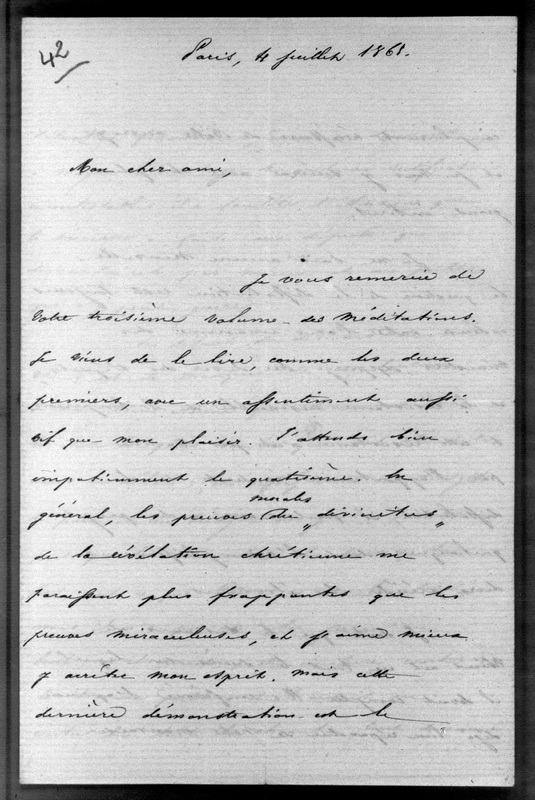 42
Paris, 4 juillet 1868.
Mon cher ami,
Je vous remercie de
votre troisième volume des méditations.
Je viens de le lire, comme les deux
premiers, avec un assentiment aussi
vif que mon plaisir. J'attends bien
impatiemment le quatrième. En
morales
général, les preuves du "divinitus"
de la révélation chrétienne me
paraissent plus frappantes que les
preuves miraculeuses, et j'aime mieux
y arrêter mon esprit. Mais cette
dernière démonstration est le